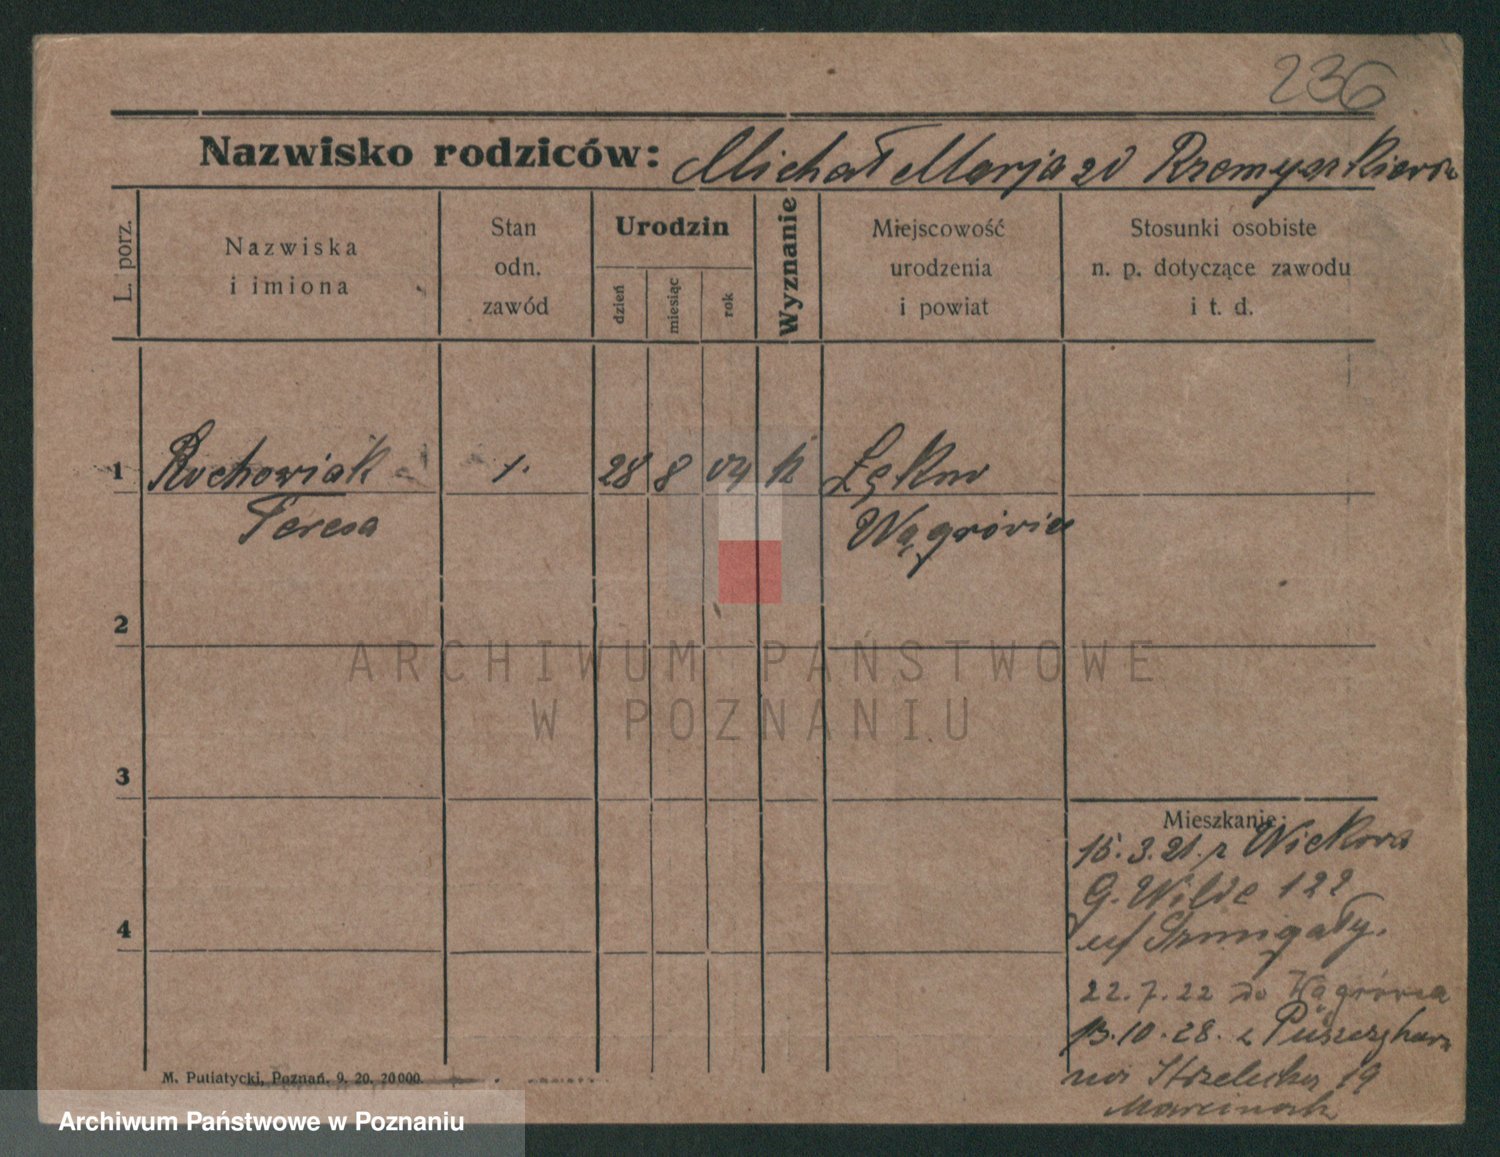 236
Nazwisko rodziców: Michał Marja zd
L. porz.
Nazwiska
i imiona
Stan
odn.
zawód
Urodzin
dzień
miesiąc
rok
Wyznanie
Miejscowość
urodzenia
i powiat
Stosunki osobiste
n. p. dotyczące zawodu
i t. d.
1 Ruchowiak 1. 28 8 04 k Łękno
Teresa Wągrowiec
2
ARCHIWUM PAŃSTWOWE
W POZNANIU
3
Mieszkanie:
15.3.21. z
G. Wilde 122
u/
4
22.7.22 do Wągrówca
13.10.28. z
19
Marciniak
M. Putiatycki, Poznań. 9. 20. 20000.
Archiwum Państwowe w Poznaniu